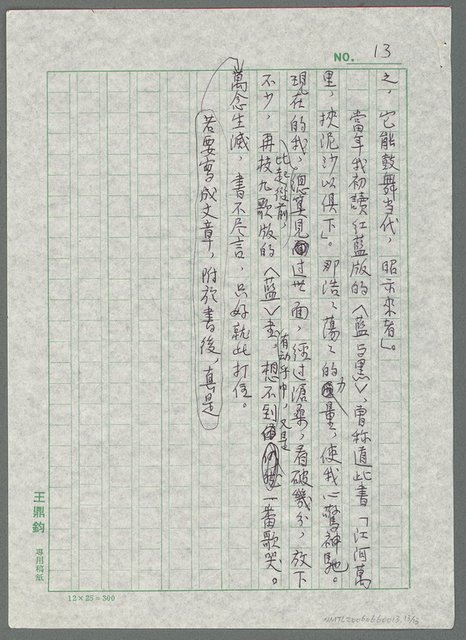 NO. 13
之，它能鼓舞当代，昭示來者」。
當年我初讀紅藍版的〈藍与黑〉，曾称道此書「江河萬
里，挾泥沙以俱下」。那浩、蕩、的力量，使我心驚神馳。
現在的我，比起從前，總算見过世面，經过滄桑，看破幾分，放下
不少，再按九歌版的〈藍〉書，想不到有动乎中，又是一番歌哭。
萬念生滅，書不尽言，只好就此打住。
若要寫成文章，附於書後，真是
王鼎鈞 專用稿紙
12×25=300
NMTL20060660013, 13/13